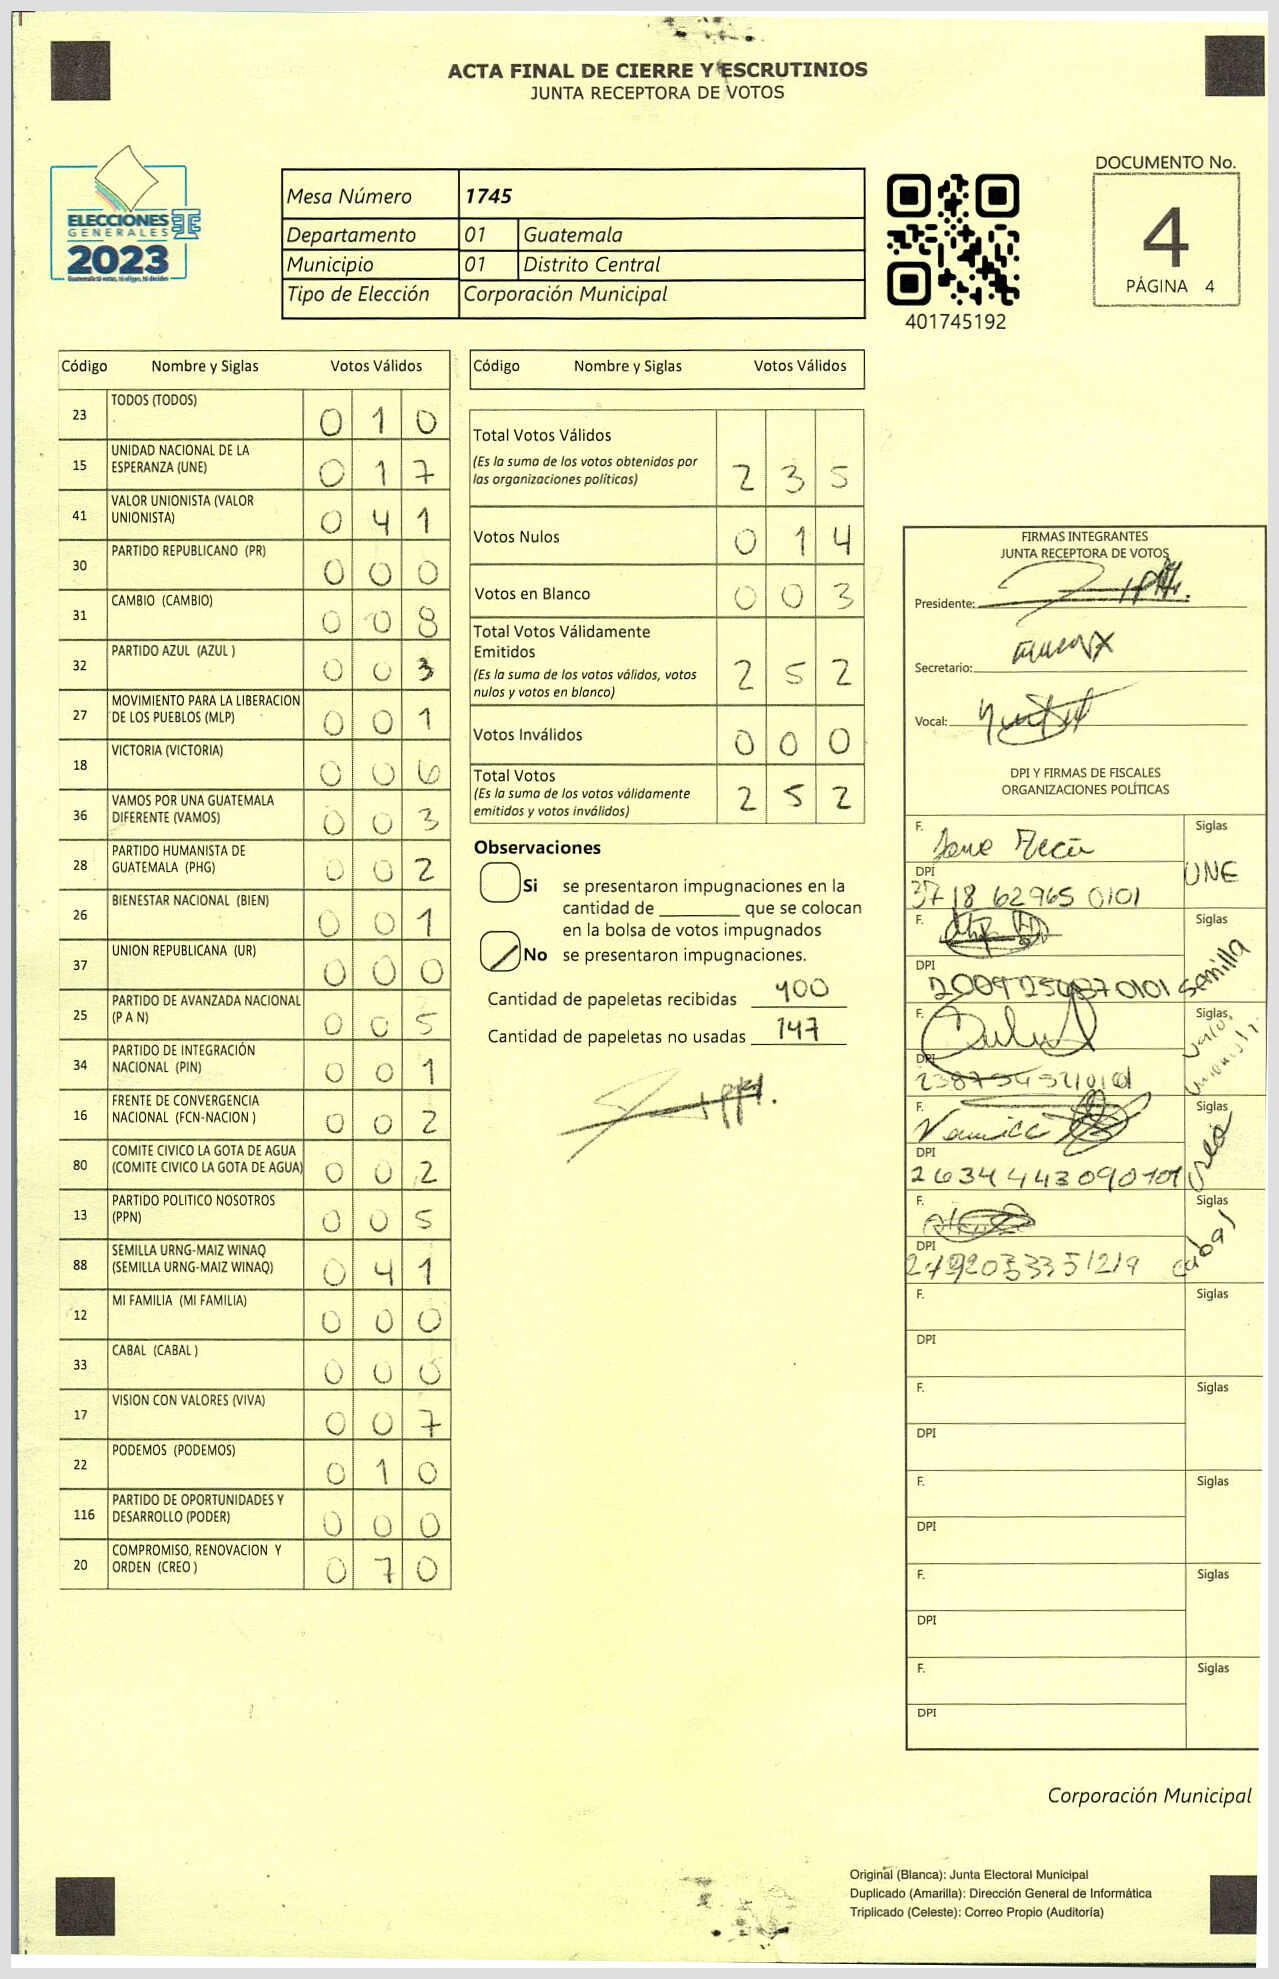 ACTA FINAL DE CIERRE Y ESCRUTINIOS
JUNTA RECEPTORA DE VOTOS
ELECCIONES
GENERALES
2023
Mesa Número 1745
Departamento 01 Guatemala
Municipio 01 Distrito Central
Tipo de Elección Corporación Municipal
401745192
DOCUMENTO No.
4
PÁGINA 4
Código Nombre y Siglas Votos Válidos
23 TODOS (TODOS) 0 1 0
15 UNIDAD NACIONAL DE LA
ESPERANZA (UNE) 0 1 7
41 VALOR UNIONISTA (VALOR
UNIONISTA) 0 4 1
30 PARTIDO REPUBLICANO (PR) 0 0 0
31 CAMBIO (CAMBIO) 0 0 8
32 PARTIDO AZUL (AZUL ) 0 0 3
27 MOVIMIENTO PARA LA LIBERACION
DE LOS PUEBLOS (MLP) 0 0 1
18 VICTORIA (VICTORIA) 0 0 6
36 VAMOS POR UNA GUATEMALA
DIFERENTE (VAMOS) 0 0 3
28 PARTIDO HUMANISTA DE
GUATEMALA (PHG) 0 0 2
26 BIENESTAR NACIONAL (BIEN) 0 0 1
37 UNION REPUBLICANA (UR) 0 0 0
25 PARTIDO DE AVANZADA NACIONAL
(P A N) 0 0 5
34 PARTIDO DE INTEGRACIÓN
NACIONAL (PIN) 0 0 1
16 FRENTE DE CONVERGENCIA
NACIONAL (FCN-NACION ) 0 0 2
80 COMITE CIVICO LA GOTA DE AGUA
(COMITE CIVICO LA GOTA DE AGUA) 0 0 2
13 PARTIDO POLITICO NOSOTROS
(PPN) 0 0 5
88 SEMILLA URNG-MAIZ WINAQ
(SEMILLA URNG-MAIZ WINAQ) 0 4 1
12 MI FAMILIA (MI FAMILIA) 0 0 0
33 CABAL (CABAL ) 0 0 0
17 VISION CON VALORES (VIVA) 0 0 7
22 PODEMOS (PODEMOS) 0 1 0
116 PARTIDO DE OPORTUNIDADES Y
DESARROLLO (PODER) 0 0 0
20 COMPROMISO, RENOVACION Y
ORDEN (CREO ) 0 7 0
Código Nombre y Siglas Votos Válidos
Total Votos Válidos
(Es la suma de los votos obtenidos por
las organizaciones políticas) 2 3 5
Votos Nulos 0 1 4
Votos en Blanco 0 0 3
Total Votos Válidamente
Emitidos
(Es la suma de los votos válidos, votos
nulos y votos en blanco) 2 5 2
Votos Inválidos 0 0 0
Total Votos
(Es la suma de los votos válidamente
emitidos y votos inválidos) 2 5 2
Observaciones
Si se presentaron impugnaciones en la
cantidad de ________ que se colocan
en la bolsa de votos impugnados
No se presentaron impugnaciones.
Cantidad de papeletas recibidas 400
Cantidad de papeletas no usadas 147
FIRMAS INTEGRANTES
JUNTA RECEPTORA DE VOTOS
Presidente:
Secretario:
Vocal:
DPI Y FIRMAS DE FISCALES
ORGANIZACIONES POLÍTICAS
F. Siglas
UNE
DPI
3718 62965 0101
F. Siglas
Semilla
DPI
F. Siglas
Valor
Unionista
DPI
F. Siglas
Creo
DPI
2634 443090101
F. Siglas
Cabal
DPI
F. Siglas
DPI
F. Siglas
DPI
F. Siglas
DPI
F. Siglas
DPI
F. Siglas
DPI
Corporación Municipal
Original (Blanca): Junta Electoral Municipal
Duplicado (Amarilla): Dirección General de Informática
Triplicado (Celeste): Correo Propio (Auditoría)